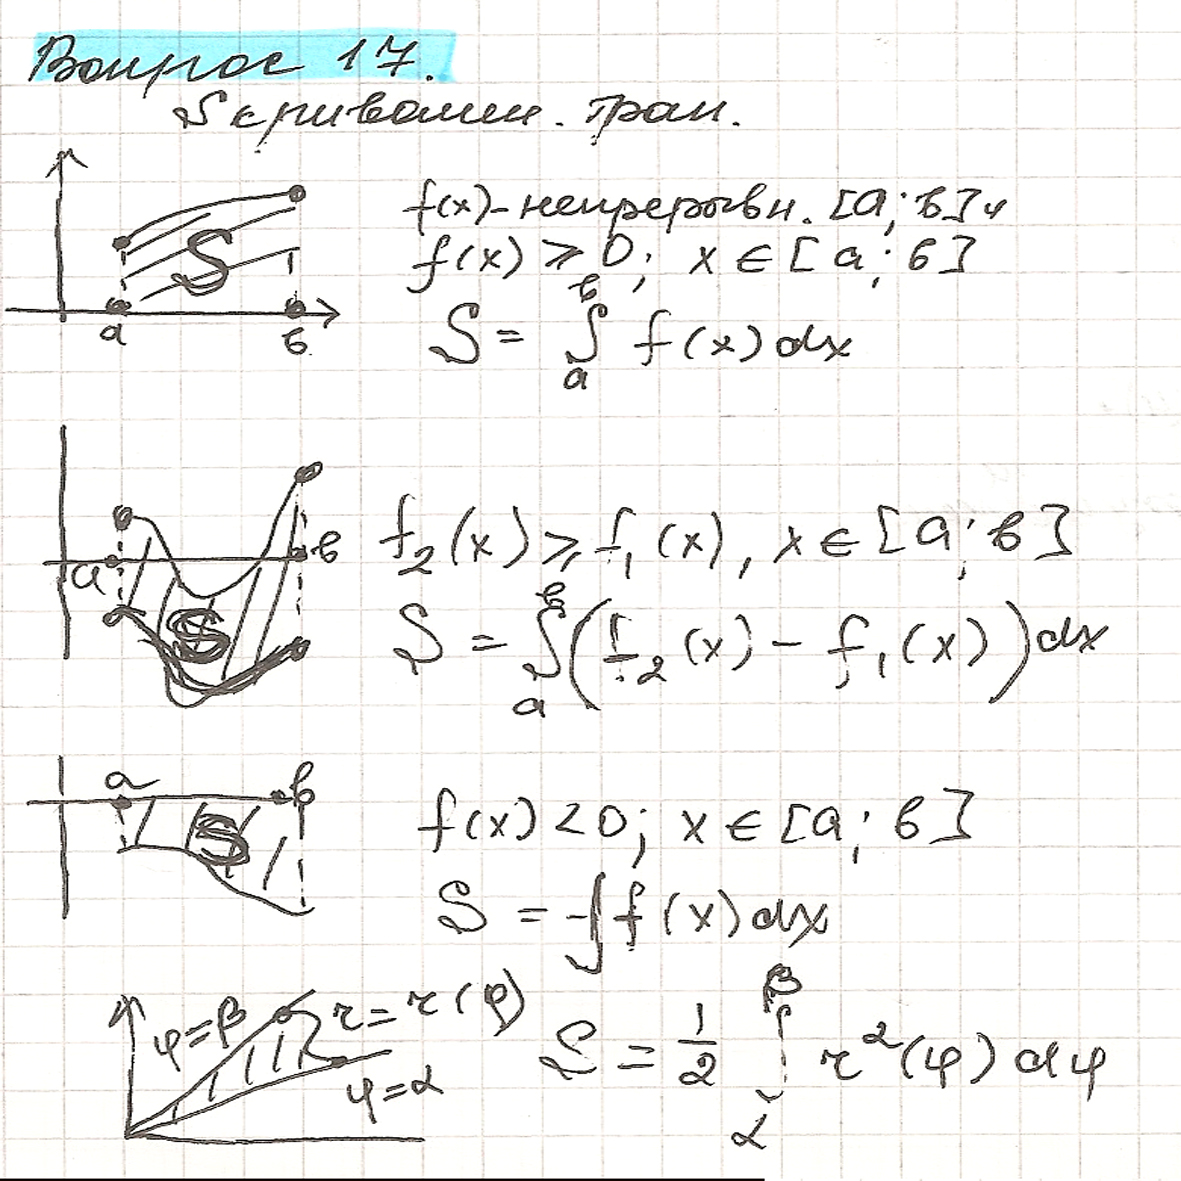 Вопрос 17.
S криволин. трап.
S
a
в
f(x)-непрерывн. [a; в] и
f(x) ⩾ 0; x ∈ [a; в]
S = ∫ₐᵇ f(x) dx
a
в
S
f₂(x) ⩾ f₁(x), x ∈ [a; в]
S = ∫ₐᵇ (f₂(x) - f₁(x)) dx
a
в
S
f(x) < 0; x ∈ [a; в]
S = -∫ f(x) dx
φ=β
r = r(φ)
φ=α
S = 1/2 ∫_α^β r²(φ) dφ